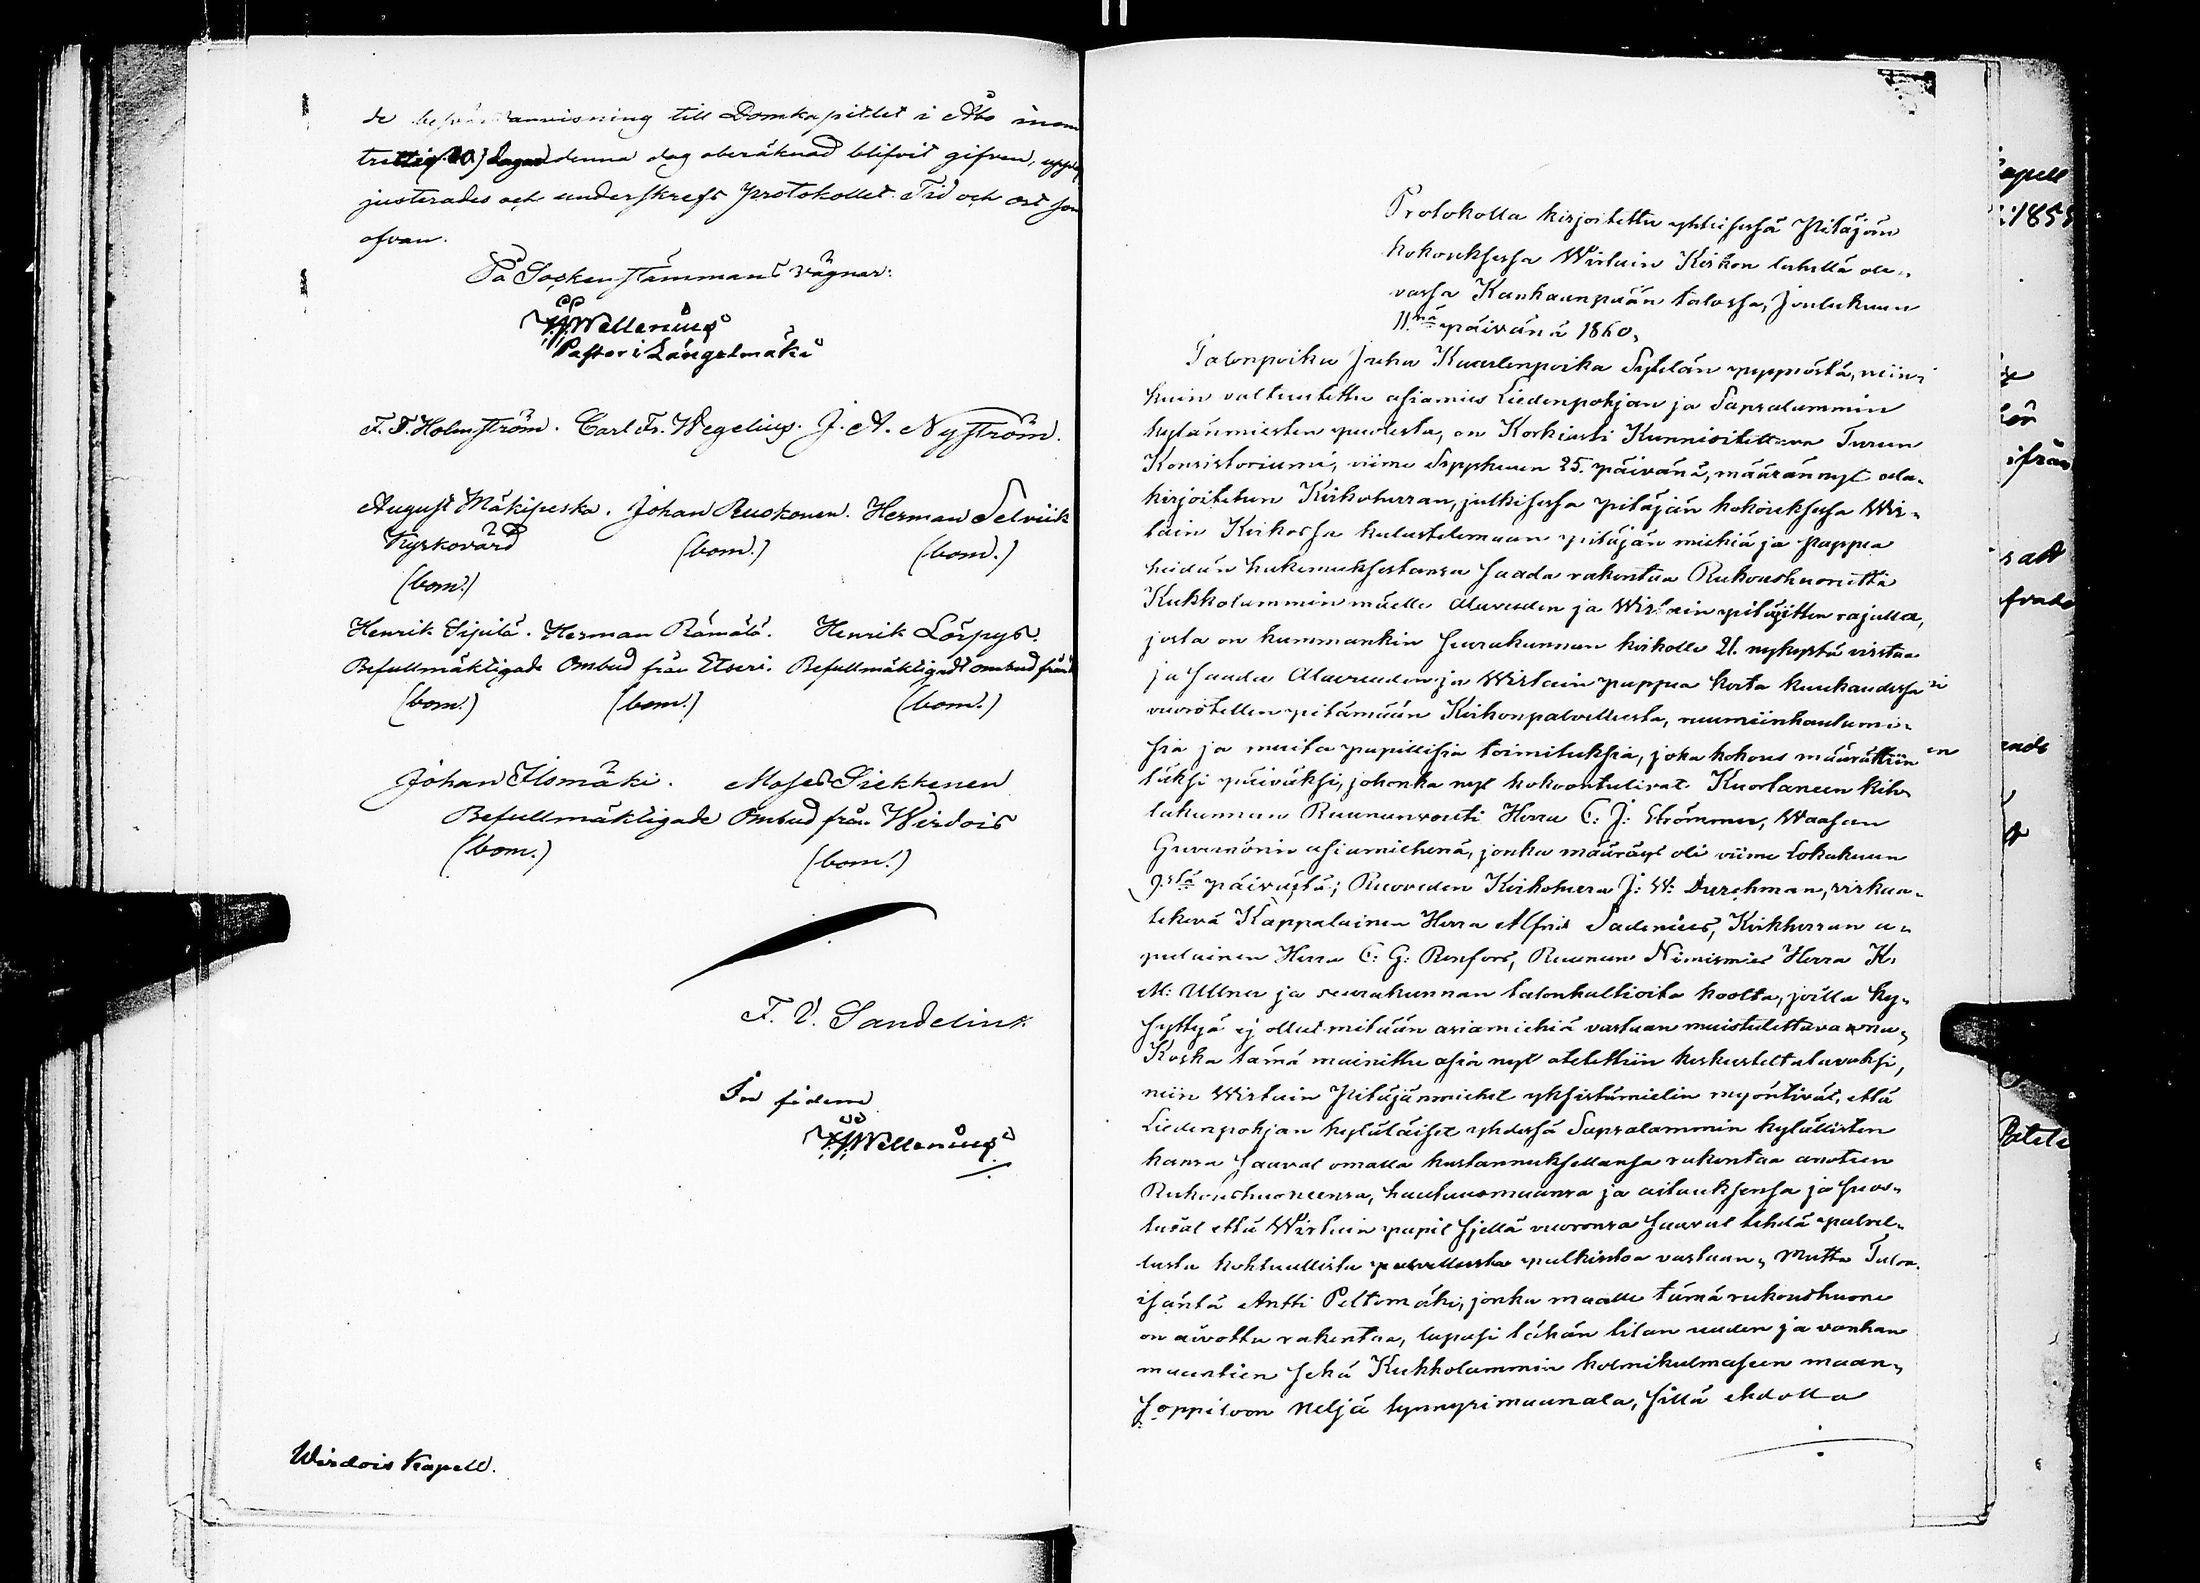 de besvärsanvisning till Domkapitlet i Åbo inom
trettio (30) dagar denna dag oberäknad blifvit gifven, upp
justerades och underskrefs Protokollet. Tid och ort som
ofvan.
På Sockenstämmans vägnar:
Wellenius
Pastor i Längelmäki
F. F. Holmström. Carl Fr. Wegelius. J. A. Nyström.
August Mäkipeska. Johan Ruokonen. Herman Selviik
Kyrkovärd (bom.) (bom.)
(bom.)
Henrik Sijulä. Herman Rämälä. Henrik Lörpys.
Befullmäktigade Ombud från Etseri. Befullmäktigadt ombud från
(bom.) (bom.) (bom.)
Johan Ilomäki. Moses Siekkinen
Befullmäktigade Ombud från Wirdois
(bom.) (bom.)
F. V. Sandelin
In fidem
Wellenius
Wirdois Kapell.
Protokolla kirjoitettu yhteisessä Pitäjän
kokouksessa Wirtain Kirkon tykönä ole-
vassa Kankaanpään talossa, Joulukuun
11.nä päivänä 1860.
Talonpoika Juha Kaarlenpoika Sytelän nuppöstä, niin-
kuin valtuutettu asiamies Liedenpohjan ja Sapsalammin
kylänmiesten puolesta, on Korkiasti Kunnioitettava Turun
Konsistoriumi, viime Syyskuun 25. päivänä, määrännyt ala-
kirjoitetun Kirkoherran, julkisessa pitäjän kokouksessa Wir-
tain Kirkossa kulustelemaan pitäjän miehiä ja pappia
heidän hakemuksestansa saada rakentaa Rukoushuonetta
Kukkolammin mäelle Alavuden ja Wirtain pitäjitten rajalla,
josta on kummankin seurakunnan kirkolle 21. nykystä virstaa
ja saada Alavuuden ja Wirtain pappia kerta kuukaudessa
vuorotellen pitämään Kirkonpalvellusta, ruumiinhautami-
sia ja muita papillisia toimituksia, joka kokous määrättiin
täksi päiväksi, johonka nyt kokoontulivat Kuortaneen kihla-
kunnan Ruununvouti Herra C. J. Strömmer, Waasan
Guvernörin asiamiehenä, jonka määräys oli viime lokakuun
9.stä päivästä; Ruoveden Kirkoherra J. W. Durchman, virkaa-
tekevä Kappalainen Herra Alfred Sadenius, Kirkkherran a-
pulainen Herra C. G. Renfors, Ruunun Nimismies Herra K.
M. Ullner ja seurakunnan talonhaltioita koolta, joilla ky-
syttyä ej ollut mitään asiamiehiä vastaan muistutettavanna,
Koska tämä mainittu asia nyt otetettiin keskusteltatavaksi,
niin Wirtain Pitäjänmiehet yksistämielin myöntivät, että
Liedenpohjan kyläläiset yhdessä Sapsalammin kylällisten
kansa saavat omalla kustannuksellansa rakentaa anotun
Rukoushuoneensa, hautausmaansa ja aitauksensa ja suos-
tuvat että Wirtain papit sijellä vuoronsa saavat tehdä palvel-
lusta kohtuullista palvellusta palkintoa vastaan, Mutta Talon
isäntä Antti Peltomäki, jonka maalle tämä rukoushuone
on aivottu rakentaa, lupasi tähän tilan uuden ja vanhan
maantien sekä Kukkolammin kolmikulmaseen maan-
soppiloon neljä tynnyrimaanala, sillä ehdolla